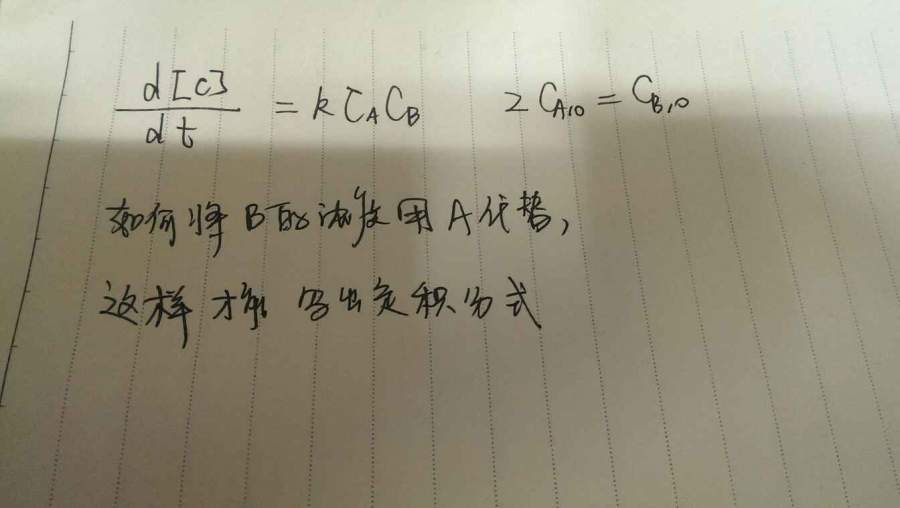 d[C]/dt = k C_A C_B  2 C_A,0 = C_B,0
如何将B的浓度用A代替,
这样才能写出定积分式